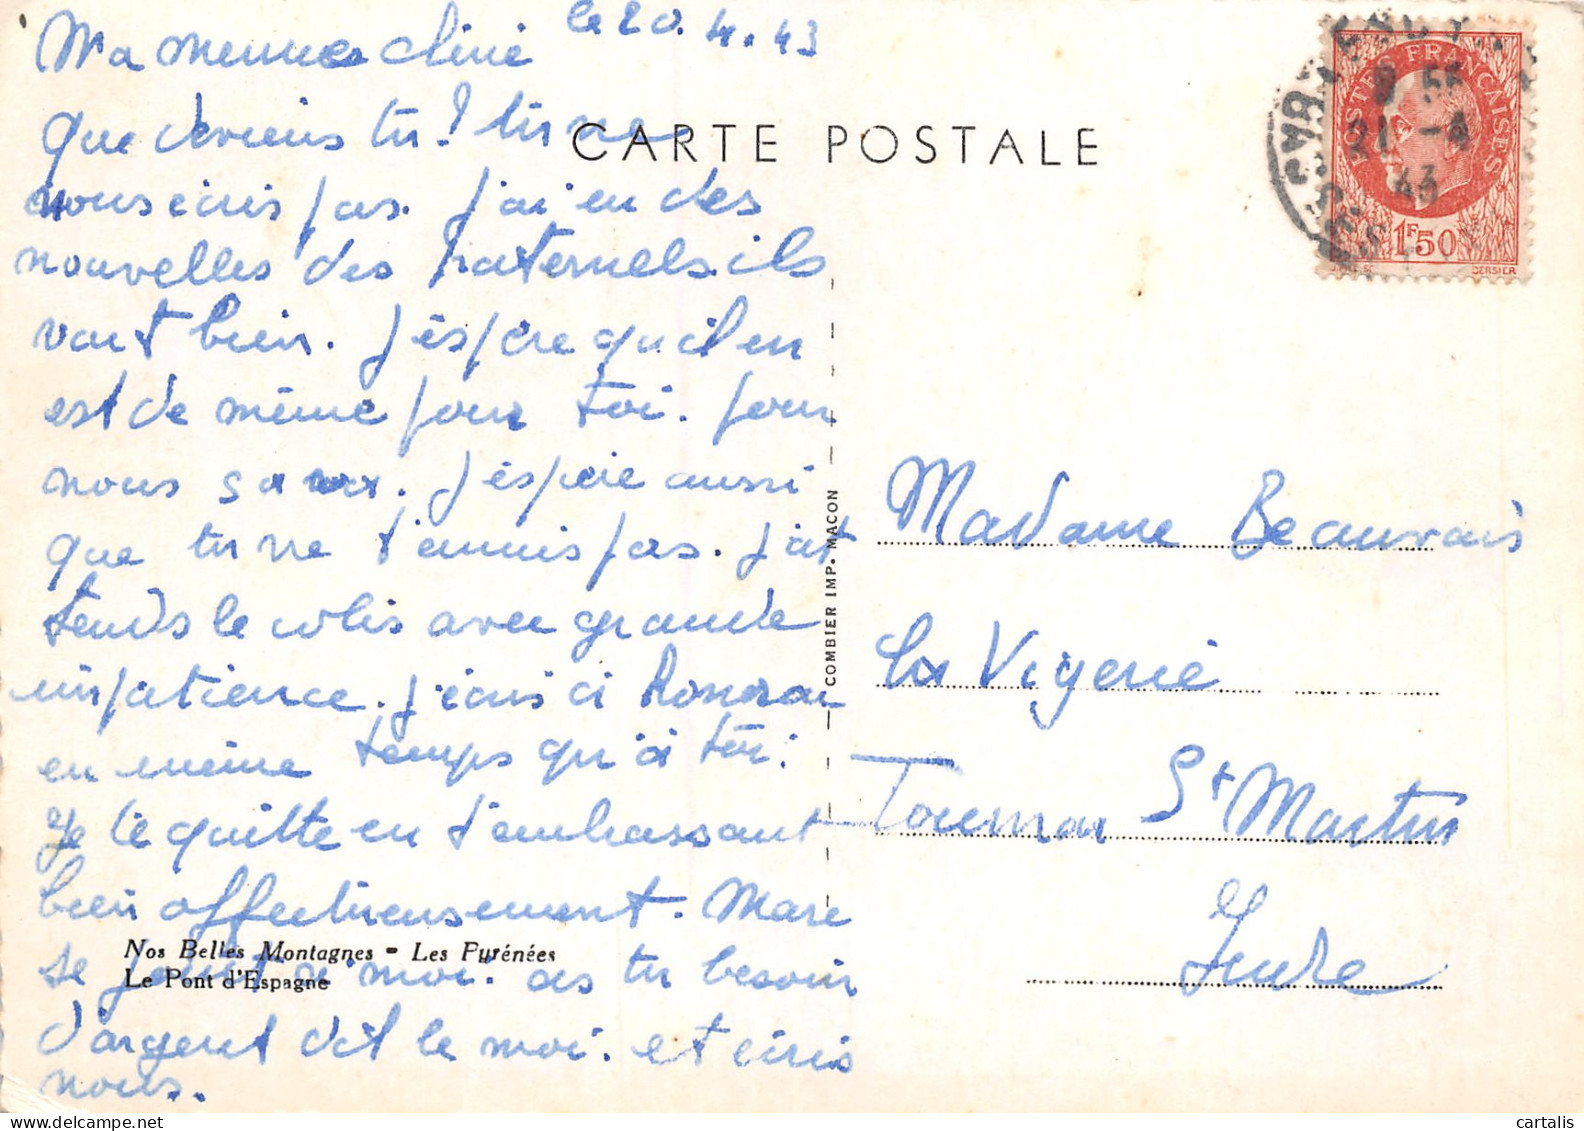 le 20.4.43
Ma chérie
que deviens tu? tu ne
nous écris pas. J'ai eu des
nouvelles des paternels ils
vont bien. J'éspère qu'il en
est de même pour toi. pour
nous J'éspère aussi
que tu ne t'ennuis pas. J'at
tends le colis avec grande
impatience. J'écris à
en même temps qu'à toi.
Je te quitte en t'embrassant
bien affectueusement.
se de moi. as tu besoin
d'argent dit le moi. et écris
nous.
CARTE POSTALE
Nos Belles Montagnes - Les Pyrénées
Le Pont d'Espagne
COMBIER IMP. MACON
POSTES FRANÇAISES
1F50
BERSIER
21 -4
43
Madame Beauvais
La Vigerie
Tournon St Martin
Indre
cartalis